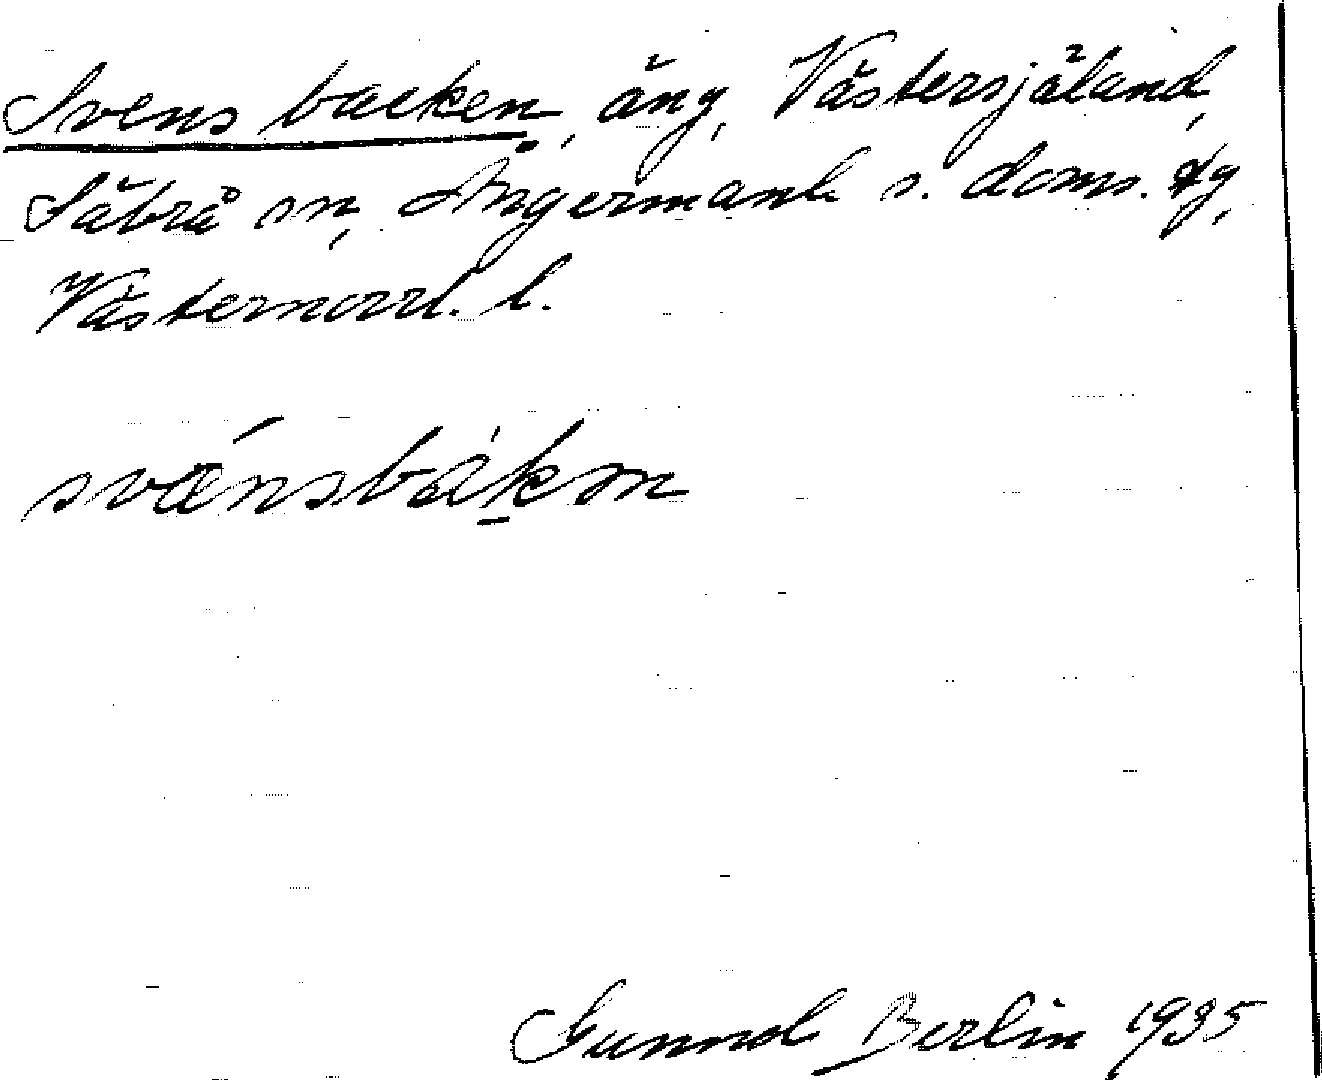 Svens backen, äng, Västersjäland,
Säbrå sn, Ångermanl s. doms. dg,
Västernorrl. l.
svänsbakən
Gunnol Berlin 1935